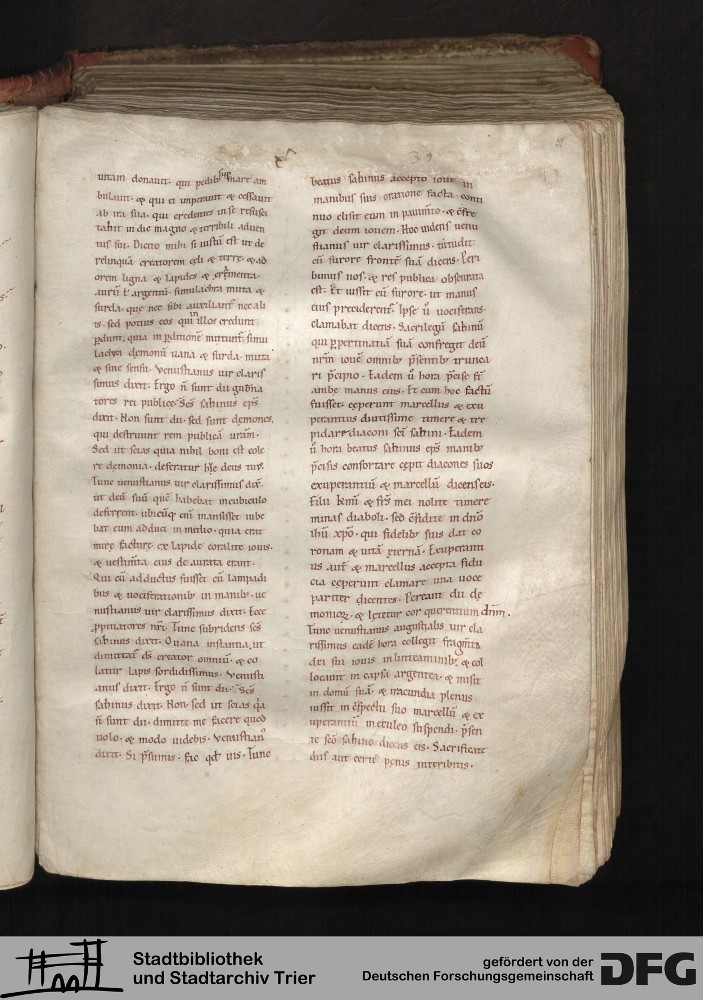 xl
39
uitam donauit. qui pedib; sup mare am
bulauit. & qui ei imperauit & cessauit
ab ira sua. qui credentes in se resusci
tabit in die magno & terribili aduen
tus sui. Dicito mihi si iustū est ut de
relinquā creatorem celi & terrę. & ad
orem ligna & lapides & erprementa
aurū ł argentū. simulachra muta &
surda. quę nec sibi auxiliant̄ nec ali
is. sed potius eos qui in illos credunt
ꝑdunt. quia in ꝑditionē mittunt̄. simu
lachra demonū uana & surda. muta
& sine sensu. Venustianus uir claris
simus dixit. Ergo n̄ sunt dii gub̄na
tores rei publicę. Scs̄ sabinus ep̄s
dixit. Non sunt dii. sed sunt demones.
qui destruunt rem publicā urām̄.
Sed ut scias quia nihil boni est cole
re demonia. deferatur huc deus tuus.
Tunc uenustianus uir clarissimus dix̄.
ut deū suū quē habebat in cubiculo
deferrent. ubicūq; enī mansisset iube
bat eum adduci in medio. quia erat
mirę facturę ex lapide coralite iouis.
& uestim̄ta eius de aurata erant.
Qui cū adductus fuisset cū lampadi
bus & uociferationib; in manib;. ue
nustianus uir clarissimus dixit. Ecce
ꝓpitiatores nr̄i. Tunc subridens scs̄
sabinus dixit. O uana instantia. ut
dimittat̄ ds̄ creator omniū. & co
latur lapis sordidissimus. Venusti
anus dixit. Ergo n̄ sunt dii. Scs̄
sabinus dixit. Non. sed ut scias q̄a
n̄ sunt dii. dimitte me facere quod
uolo. & modo uidebis. Venustian'
dixit. Si p̄sumis. fac qd' uis. Tunc
beatus sabinus accepto ioue in
manibus suis oratione facta conti
nuo elisit eum in pauim̄to. & c̄fre
git deum iouem. Hoc uidens uenu
stianus uir clarissimus. tutudit
cū furore frontē suā dicens. Peri
bimus nos. & res publica obscurata
est. Et iussit cū furore. ut manus
eius preciderent̄. Ipse ū uociferans
clamabat dicens. Sacrilegū sabinū
qui ꝑ pertinatiā suā confregit deū
nr̄m iouē omnib; p̄sentib; trunca
ri p̄cipio. Eadem ū hora p̄cise st̄
ambę manus eius. Et cum hoc factū
fuisset. ceperunt marcellus & exu
perantius diutissime timere & tre
pidare diaconi sc̄i sabini. Eadem
ū hora beatus sabinus ep̄s manib;
p̄cisis confortare cepit diacones suos
exuperantiū & marcellū dicens eis.
Filii kmī & fr̄s mei nolite timere
minas diaboli. sed c̄fidite in dn̄o
ihū xp̄o. qui fidelib; suis dat co
ronam & uitā ęternā. Exuperanti
us aut̄ & marcellus accepta fidu
cia ceperunt clamare una uoce
pariter dicentes. Pereant dii dę
moniorꝝ. & letetur cor querentium dn̄m.
Tunc uenustianus augustalis. uir cla
rissimus eadē hora collegit fragm̄ta
dei sui iouis in linteaminib;. & col
locauit in capsa argentea. & misit
in domū suā. & iracundia plenus
iussit in c̄spectu suo marcellū & ex
uperantiū in eculeo suspendi. p̄sen
te scō sabino dicens eis. Sacrificate
diis aut certe penis interibitis.
Stadtbibliothek
und Stadtarchiv Trier
gefördert von der
Deutschen Forschungsgemeinschaft
DFG